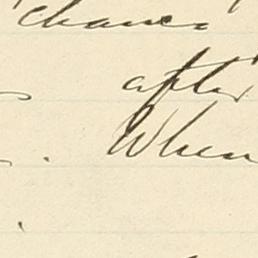 chance
after
. When